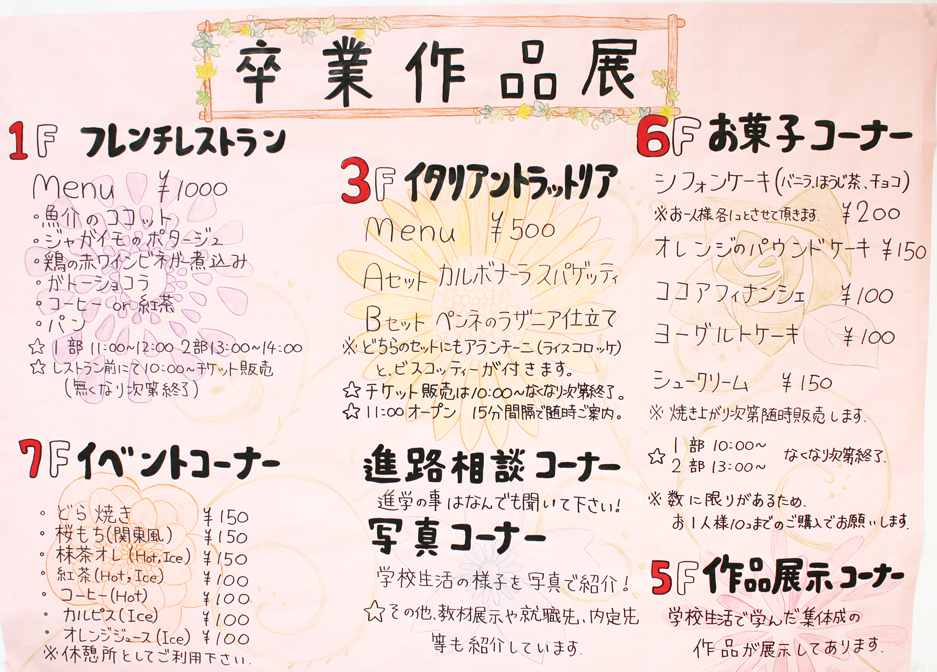 卒業作品展
1F フレンチレストラン
Menu ¥1000
・魚介のココット
・ジャガイモのポタージュ
・鶏の赤ワインビネガー煮込み
・ガトーショコラ
・コーヒー or 紅茶
・パン
☆ 1部 11:00~12:00 2部13:00~14:00
☆ レストラン前にて10:00~チケット販売
(無くなり次第終了)
3F イタリアントラットリア
Menu ¥500
Aセット カルボナーラスパゲッティ
Bセット ペンネのラザニア仕立て
※ どちらのセットにもアランチーニ(ライスコロッケ)
と、ビスコッティーが付きます。
☆チケット販売は10:00~なくなり次第終了。
☆11:00オープン 15分間隔で随時ご案内。
6F お菓子コーナー
シフォンケーキ(バニラ、ほうじ茶、チョコ)
※お一人様各1コとさせて頂きます. ¥200
オレンジのパウンドケーキ ¥150
ココアフィナンシェ ¥100
ヨーグルトケーキ ¥100
シュークリーム ¥150
※ 焼き上がり次第随時販売します.
☆ 1部 10:00~
2部 13:00~ なくなり次第終了.
※ 数に限りがあるため、
お1人様10コまでのご購入でお願いします.
7F イベントコーナー
・どら焼き ¥150
・桜もち(関東風) ¥150
・抹茶オレ(Hot,Ice) ¥150
・紅茶(Hot,Ice) ¥100
・コーヒー(Hot) ¥100
・カルピス(Ice) ¥100
・オレンジジュース(Ice) ¥100
※休憩所としてご利用下さい.
進路相談コーナー
進学の事はなんでも聞いて下さい!
写真コーナー
学校生活の様子を写真で紹介!
☆その他、教材展示や就職先、内定先
等も紹介しています.
5F 作品展示コーナー
学校生活で学んだ集体成の
作品が展示してあります.